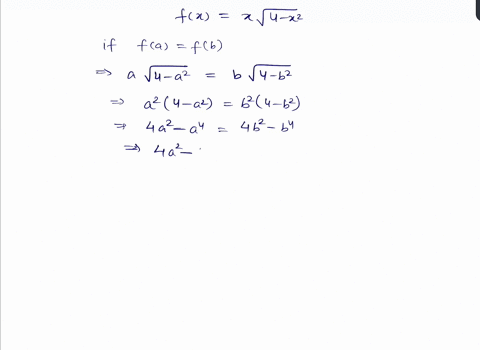 f(x) = x√(4-x²)
if f(a) = f(b)
⇒ a √(4-a²) = b √(4-b²)
⇒ a²(4-a²) = b²(4-b²)
⇒ 4a²-a⁴ = 4b²-b⁴
⇒ 4a²-